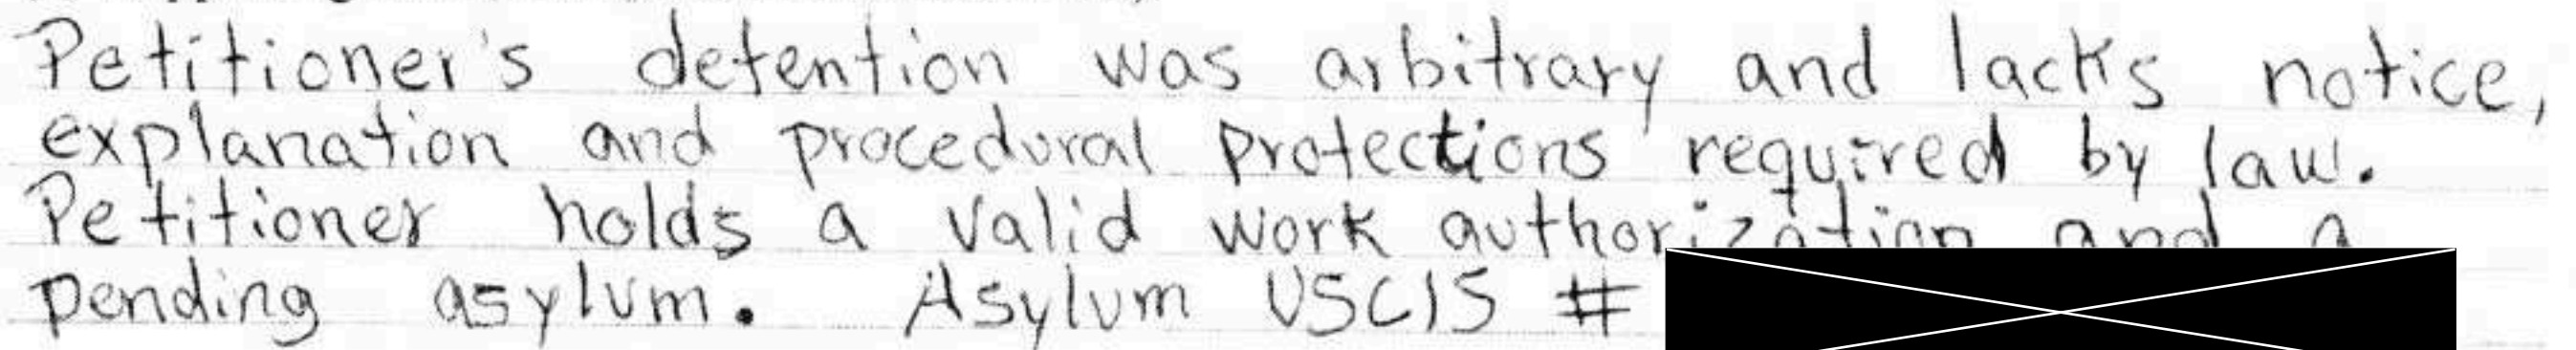 Petitioner's detention was arbitrary and lacks notice,
explanation and procedural protections required by law.
Petitioner holds a valid work authorization and a
pending asylum. Asylum USCIS #